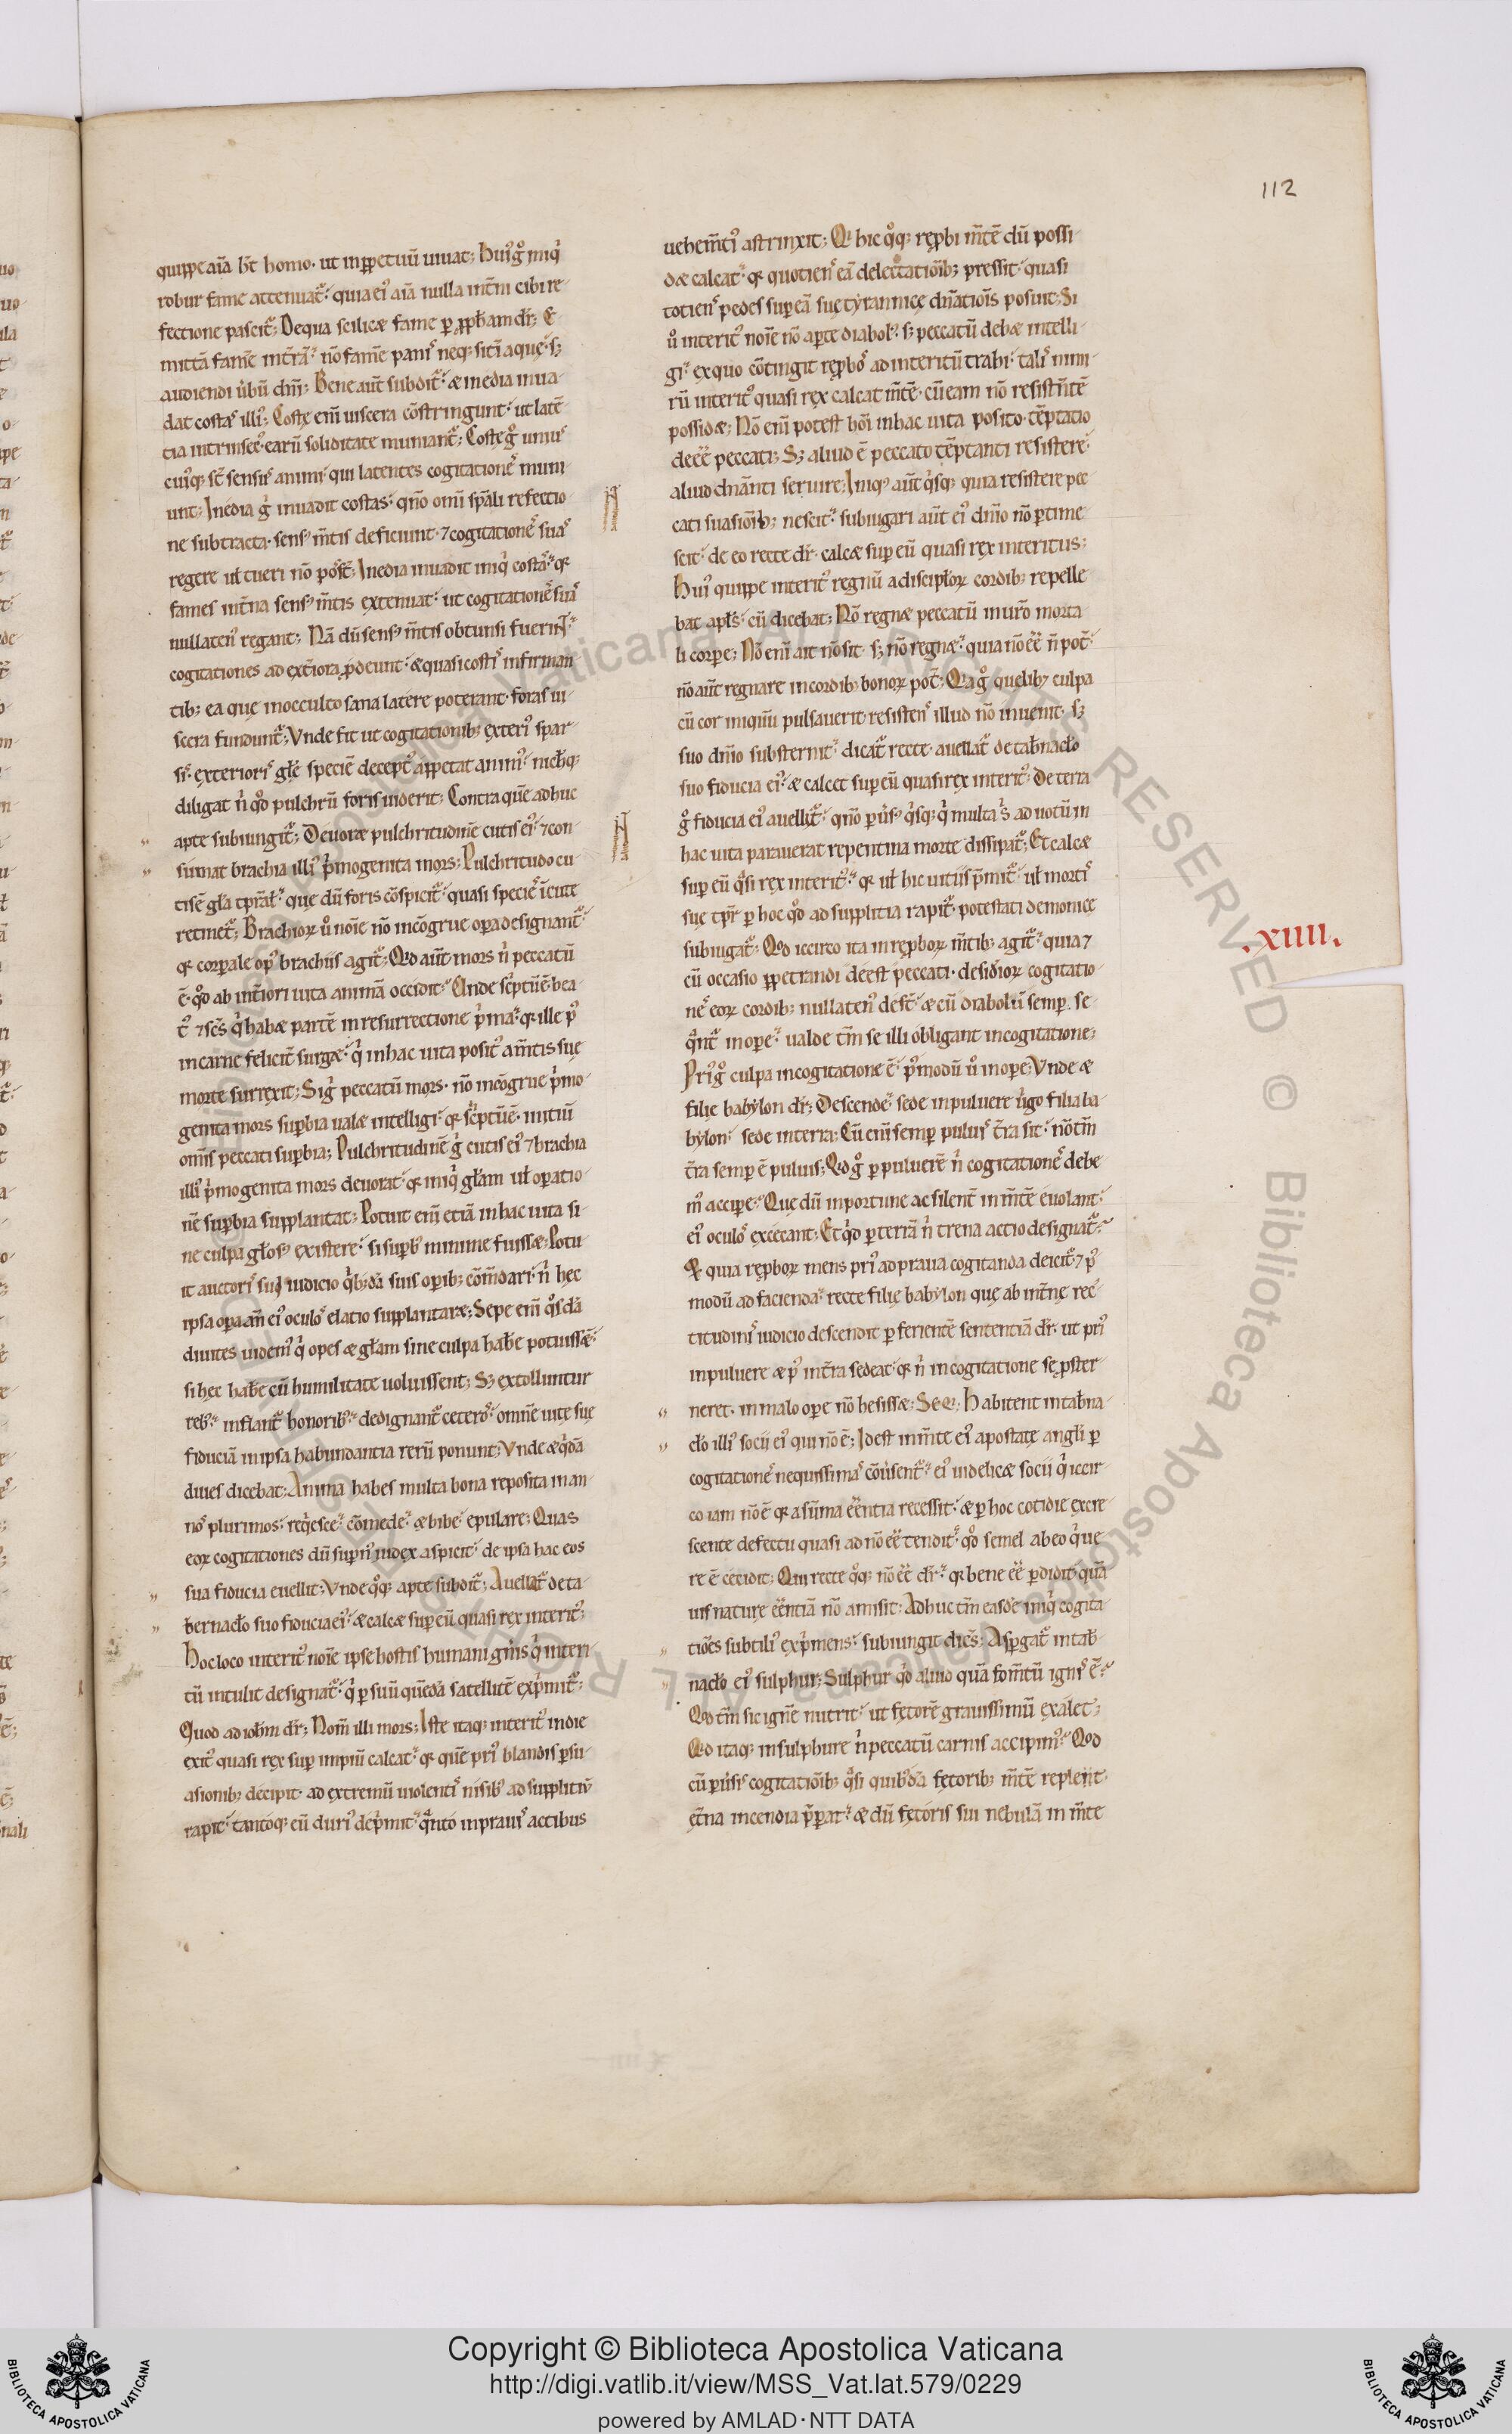 112
quippe aīa hr̄ homo· ut inppetuū uiuat; huiꝰ gͦ iniqͥ
robur fame attenuat᷑· quia eiꝰ aīa nulla int̄ni cibi re-
fectione pascit᷑; De qua scilicæ fame ꝑ ꝓph̄am dr̄; E-
mittā famē int̄rā· nō famē panis neq; sitī aquę· sꝫ
audiendi ūbū dn̄i; Bene aūt subdit᷑· æ inedia inua-
dat costas illiꝰ; Costę eni᷑ uiscera cōstringunt· ut latē-
tia intrinsecꝰ earū soliditate muniant᷑; Costę gͦ uniꝰ
cuiꝰq; st̄ sensus animi qui latentes cogitationes muni-
unt; Inedia gͦ inuadit costas· qn̄o omī spāli refectio-
ne subtracta· sensꝰ m̄tis deficiunt· ⁊ cogitationes suas
regere uł tueri nō pos̄t; Inedia inuadit iniqͥ costas· qꝛ
fames int̄na sensꝰ m̄tis extenuat· ut cogitationes suas
nullatenꝰ regant; Nā dū sensꝰ m̄tis obtunsi fuerint·
cogitationes ad ext̄iora ꝓdeunt· æ quasi costis infirman-
tibꝫ ea quę in occulto sana latere poterant· foras ui-
scera fundunt᷑; Vnde fit ut cogitationibꝫ exteriꝰ spar-
sis· exterioris glē speciē deceptꝰ appetat animꝰ· nichilq;
diligat n̄ qͦd pulchrū foris uiderit; Contra quē adhuc
apte subiungit᷑; Deuoræ pulchritudinē cutis eiꝰ· ⁊ con-
sumat brachia illiꝰ p̄mogenita mors; Pulchritudo cu-
tis ē gła tp̄rał· quę dū foris cōspicit᷑· quasi species ī cute
retinet᷑; Brachioꝝ ů noīe nō incōgrue oꝑa designant᷑·
qꝛ corꝑale opꝰ brachiis agit᷑; Qd aūt mors n̄ peccatū
ē· qͦd ab int̄iori uita animā occidit; Vnde sc̄ptū ē· bea-
tꝰ ⁊ sc̄s qͥ habæ partē in resurrectione p̄ma· qꝛ ille pꝰ
in carne felicit̄ surgæ· qͥ in hac uita positꝰ a m̄tis suę
morte surrexit; Si gͦ peccatū mors· nō incōgrue p̄mo-
genita mors suꝑbia ualæ intelligi· qꝛ sc̄ptū ē· initiū
omīs peccati suꝑbia; Pulchritudinē gͦ cutis eiꝰ ⁊ brachia
illiꝰ p̄mogenita mors deuorat· qꝛ iniqͥ głam uł oꝑatio-
nē suꝑbia supplantat; Potuit eni᷑ etiā in hac uita si-
ne culpa głosꝰ existere· si suꝑbꝰ minime fuissæ; Potu-
it auctoris sui iudicio qͥbꝫdā suis oꝑibꝫ cōm̄dari· n̄ hęc
ipsa oꝑa an̄ eiꝰ oculos elatio supplantaræ; Sepe eni᷑ qͦsdā
diuites uidemꝰ qͥ opes æ głam sine culpa hab̄e potuissēt·
si hec hab̄e cū humilitate uoluissent; Sꝫ extolluntur
rebꝰ· inflant᷑ honoribꝰ· dedignant᷑ ceteros· omnē uitę suę
fiduciā in ipsa habundantia rerū ponunt; Vnde æ qͥdā
diues dicebat; Anima habes multa bona reposita in an-
nos plurimos· reqͥesce· cōmede· æ bibe· epulare; Quas
eoꝝ cogitationes dū suꝑnꝰ iudex aspicit· de ipsa hac eos
sua fiducia euellit; Vnde qͦq; apte subdit᷑; Auellat᷑ de ta-
bernacło suo fiducia eiꝰ· æ calcæ suꝑ eū quasi rex interitꝰ;
Hoc loco interitꝰ noīe ipse hostis humani gn̄is qͥ interi-
tū intulit designat᷑· qͥ ꝑ suū quēdā satellitē exp̄mit᷑;
Quod ad ioh̄m dr̄; Nom̄ illi mors; Iste itaq; interitꝰ in die
exitꝰ quasi rex suꝑ impiū calcat· qꝛ quē priꝰ blandis ꝑsu-
asionibꝫ decipit· ad extremū uiolentis nisibꝰ ad suppliciū
rapit· tantoq; eū duriꝰ dep̄mit· qͣnto in prauis actibus
uehem̄tiꝰ astrinxit; Q hic qͦq; reꝓbi m̄tē dū possi-
dæ calcat· qꝛ quotiens eā delectationibꝫ pressit· quasi
totiens pedes suꝑ eā suę tyrannicę dn̄ationis posuit; Si
ů interitꝰ noīe nō aꝑte diabolꝰ· sꝫ peccatū debæ intelli-
gi· ex quo cōtingit reꝓbos ad interitū trahi· talis nimi-
rū interitꝰ quasi rex calcat m̄tē· cū eam nō resistn̄tē
possidæ; Nō eni᷑ potest hōi in hac uita posito· tēptatio
deēē peccati; Sꝫ aliud ē peccato tēptanti resistere·
aliud dn̄anti seruire; Iniqꝰ aūt qͥsq; quia resistere pec-
cati suasionibꝫ nescit· subiugari aūt eiꝰ dn̄io nō ꝑtime-
scit· de eo recte dr̄· calcæ suꝑ eū quasi rex interitus;
Huiꝰ quippe interitꝰ regnū a discipłoꝝ cordibꝫ repelle-
bat apłs· cū dicebat; Nō regnæ peccatū in uro morta-
li corꝑe; Nō eni᷑ ait nō sit· sꝫ nō regnæ· quia nō ēē n̄ pot̄·
nō aūt regnare in cordibꝫ bonoꝝ pot̄; Q̇a gͦ quelibꝫ culpa
cū cor iniquū pulsauerit· resistens illud nō inuenit· sꝫ
suo dn̄io substernit· dicat᷑ recte· auellat᷑ de tab̄nacło
suo fiducia eiꝰ· æ calcet suꝑ eū quasi rex interitꝰ; De terra
gͦ fiducia eiꝰ auellit᷑· qn̄o ꝑūsꝰ qͥsq; qͥ multa s̄ ad uotū in
hac uita parauerat repentina morte dissipat᷑; Et calcæ
suꝑ eū qͣsi rex interitꝰ· qꝛ uł hic uitiis p̄mit᷑· uł mortis
suę tp̄r ꝑ hoc qͦd ad supplitia rapit᷑· potestati demonicę
subiugat᷑· Qd iccirco ita in reꝓboꝝ m̄tibꝫ agit᷑· quia ⁊
cū occasio ꝑpetrandi deest peccati· desid̄ioꝝ cogitatio-
nes eoꝝ cordibꝫ nullatenꝰ des̄t· æ cū diabolū semꝑ se-
qͣnt᷑ in oꝑe· ualde tm̄ se illi obligant in cogitatione;
Priꝰ gͦ culpa in cogitatione ē· p̊modū ů in oꝑe; Vnde æ
filię babylon dr̄; Descende· sede in puluere ūgo filia ba-
bylon· sede in terra; Cū eni᷑ semꝑ puluis t̄ra sit· nō tm̄
t̄ra semꝑ ē puluis; Qd gͦ ꝑ puluerē n̄ cogitationes debe-
mꝰ accipe· Quę dū inportune ac silent̄ in m̄tē euolant·
eiꝰ oculos excecant; Et qͥd ꝑ terrā n̄ t̄rena actio designat᷑·
Et quia reꝓboꝝ mens priꝰ ad praua cogitanda deicit᷑· ⁊ pꝰ
modū ad facienda· recte filię babylon quę ab int̄nę rec-
titudinis iudicio descendit ꝑ ferientē sententiā dr̄· ut priꝰ
in puluere æ pꝰ in t̄ra sedeat· qꝛ n̄ in cogitatione se ꝓster-
neret· in malo oꝑe nō hesissæ; Seq; Habitent in tab̄na-
cło illiꝰ socii eiꝰ qui nō ē; Idest in m̄te eiꝰ apostatę angli ꝑ
cogitationes nequissimas cōūsent᷑· eiꝰ uidelicæ socii qͥ iccir-
co iam nō ē qꝛ a sūma ēēntia recessit· æ ꝑ hoc cotidie excre-
scente defectu quasi ad nō ēē tendit· qͦd semel ab eo qͥ ue-
re ē cecidit; Qui recte qͦq; nō ēē dr̄· qꝛ bene ēē ꝑdidit· quā-
uis naturę ēēntiā nō amisit; Adhuc tm̄ easdē iniqͥ cogita-
tiōes subtiliꝰ exp̄mens· subiungit dicēs; Aspgat᷑ in tab̄-
nacło eiꝰ sulphur; Sulphur qͥd aliud quā fom̄tū ignis ē·
Qd tm̄ sic ignē nutrit· ut fętorē grauissimū exalet;
Qd itaq; in sulphure n̄ peccatū carnis accipimꝰ· Qod
cū ꝑuisis cogitatiōibꝫ qͣsi quibꝰdā fętoribꝫ m̄tē replent·
ęt̄na incendia p̄parat· æ dū fętoris sui nebulā in m̄te
.XIIII.
Copyright © Biblioteca Apostolica Vaticana
http://digi.vatlib.it/view/MSS_Vat.lat.579/0229
powered by AMLAD·NTT DATA
BIBLIOTECA APOSTOLICA VATICANA
BIBLIOTECA APOSTOLICA VATICANA